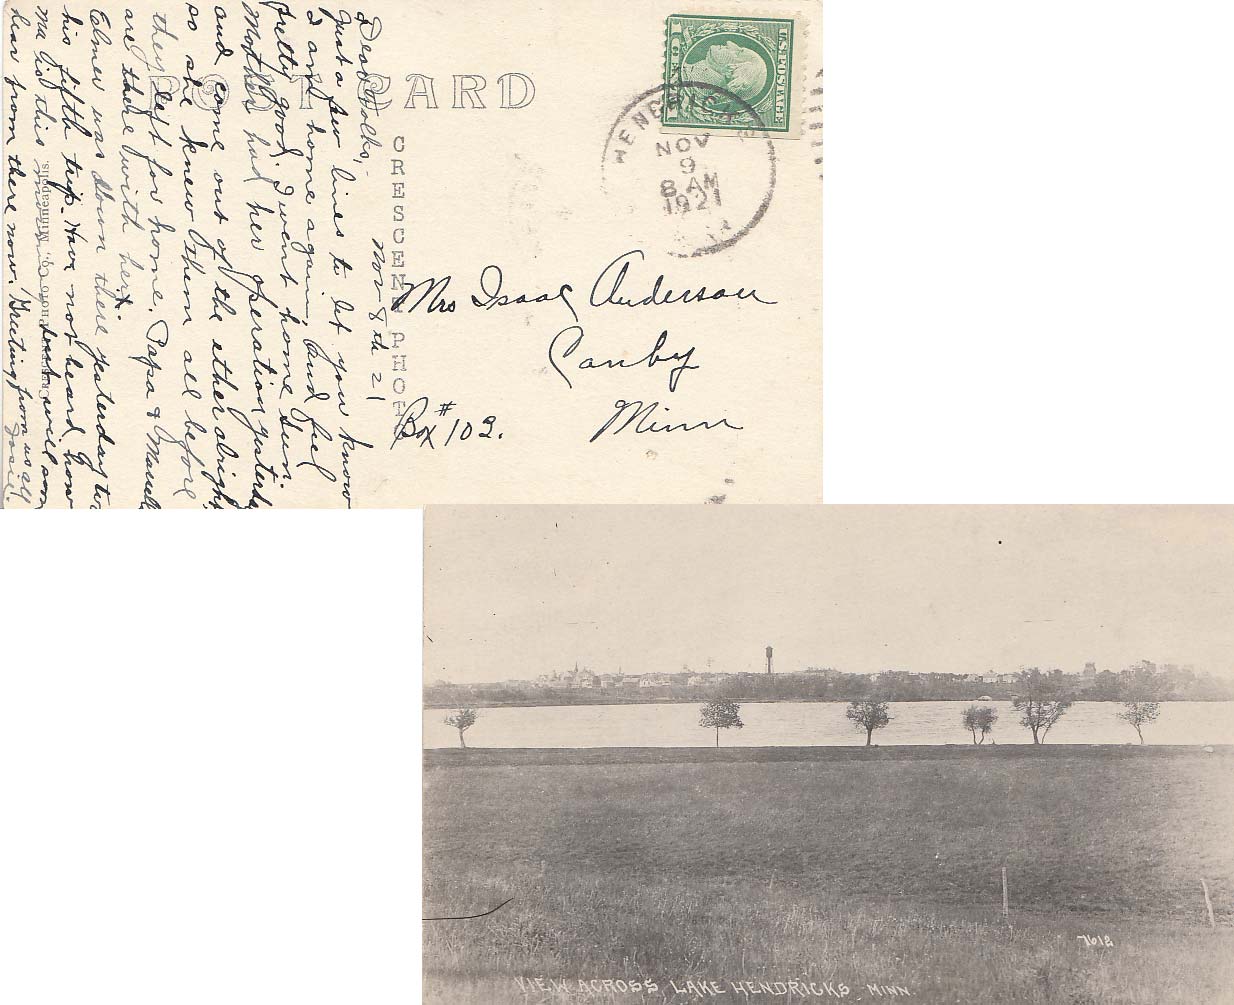 POST CARD
CRESCENT PHOTO
U.S. POSTAGE
HENDRICKS
NOV
9
8 AM
1921
Nov 8th 21
Dear Folks,-
Just a few lines to let you know
I am home again, and feel
pretty good, I went home Sun.
Mother had her operation yesterday
and come out of the ether alright
so she knew them all before
they left for home. Papa &
are there with her.
Elmer was down there yesterday
his fifth trip. Have not heard how
Ma is this will soon
hear from there now. Greeting from us all
Josie.
Minneapolis.
Mrs Isaac Anderson
Canby
Box # 102.
Minn
7612
VIEW ACROSS LAKE HENDRICKS MINN.